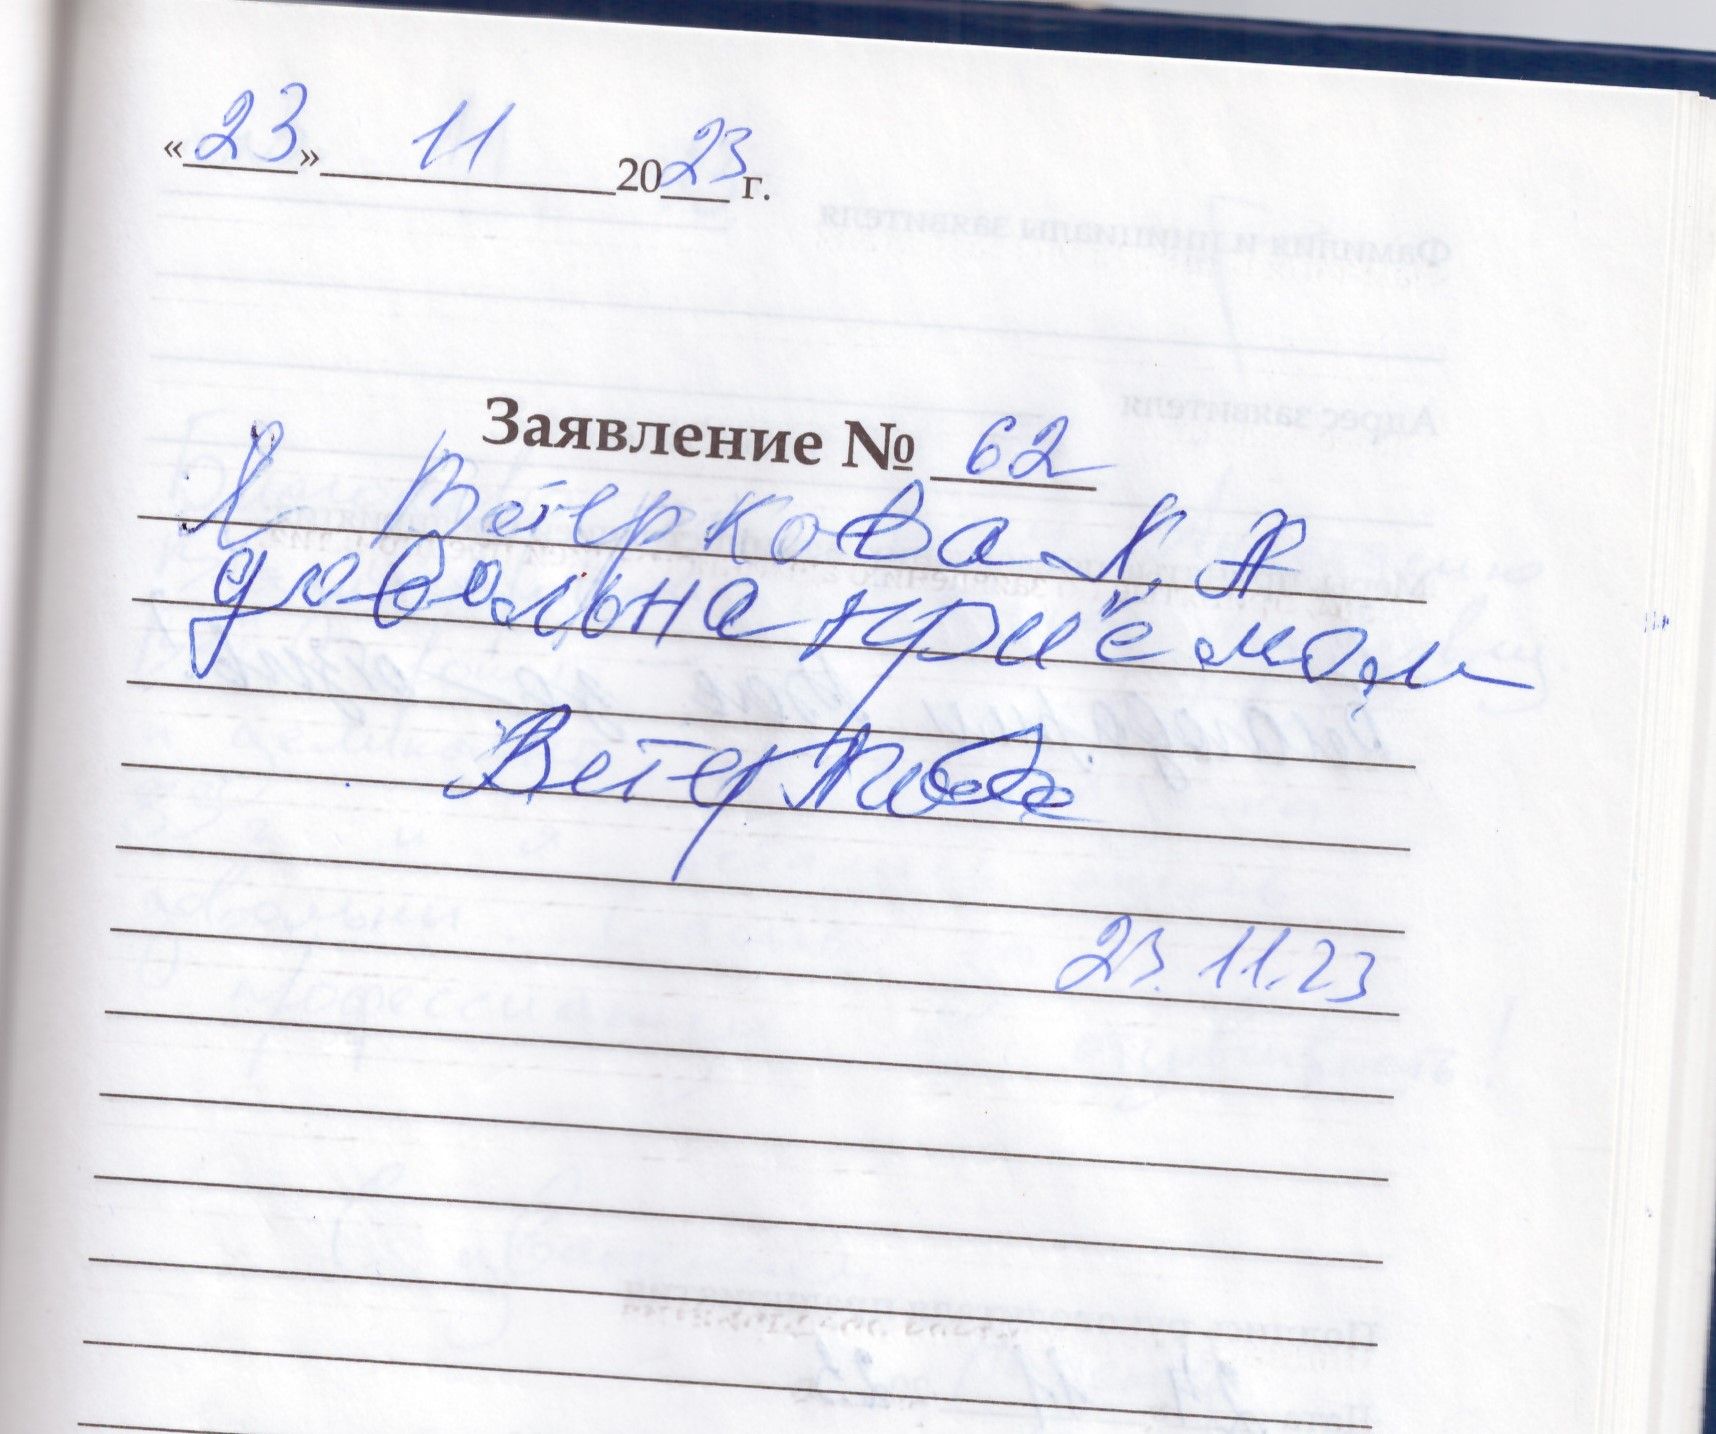 «23» 11 2023 г.
Заявление № 62
Я Ветеркова
довольна приёмом
Ветеркова
23.11.23